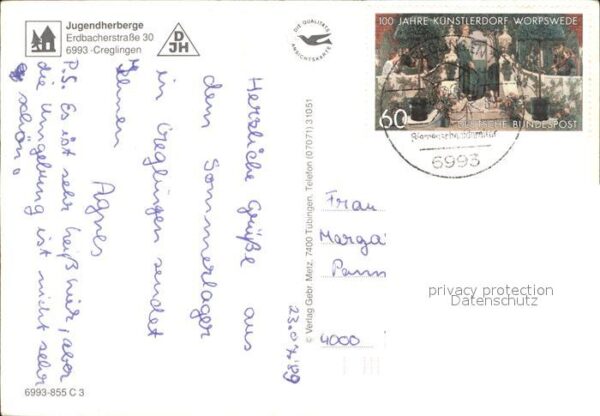 Jugendherberge
Erdbacherstraße 30
6993 -Creglingen
DJH
DIE QUALITÄTS
ANSICHTSKARTE
100 JAHRE KÜNSTLERDORF WORPSWEDE
60
DEUTSCHE BUNDESPOST
6993
Herzliche Grüße aus
dem Sommerlager
in Creglingen sendet
Ihnen
Agnes
P.S. Es ist sehr heiß hier, aber
die Umgebung ist nicht sehr
schön.
© Verlag Gebr. Metz, 7400 Tübingen, Telefon (07071) 31051
23.07.'89
Frau
Marga
4000
privacy protection
Datenschutz
6993-855 C 3